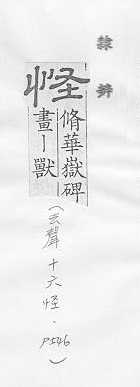 隸辨
怪
脩華嶽碑
畫｜獸
（去聲十六怪．P546）